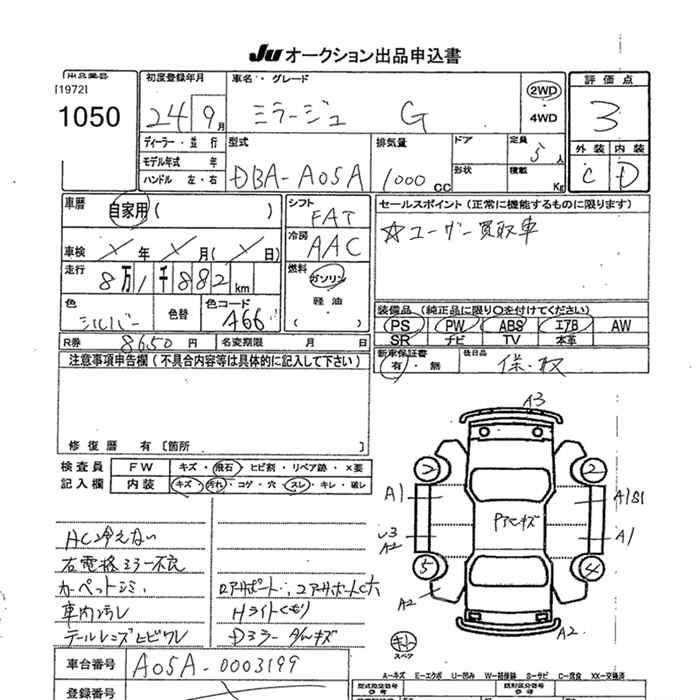 Ju オークション出品申込書
出品番号
[1972]
1050
初度登録年月
24 9月
車名・グレード
ミラージュ G
2WD
4WD
評価点
3
外装 内装
C D
ディーラー・並行
モデル年式 年
ハンドル 左・右
型式
DBA-A05A
排気量
1000 CC
ドア
形状
定員
5人
積載
Kg
車歴
自家用( )
車検 X年 X月(X日)
走行 8万1千882km
色
シルバー
色替
色コード
A66
シフト
FAT
冷房
AAC
燃料
ガソリン
軽油
( )
セールスポイント(正常に機能するものに限ります)
☆ユーザー買取車
装備品(純正品に限り○を付けてください)
PS PW ABS エアB AW
SR ナビ TV 本革
新車保証書
有・無
後日品
保・取
R券 8650円
名変期限 月 日
注意事項申告欄(不具合内容等は具体的に記入して下さい)
修復歴 有[箇所 ]
検査員
記入欄
FW キズ・飛石・ヒビ割・リペア跡・×要
内装 キズ・汚れ・コゲ・穴・スレ・キレ・破レ
AC冷えない
右電格ミラー不良
カーペットシミ
車内汚レ
テールレンズヒビワレ
ロアサポート、コアサポートC穴
Hライトくもり
Dミラー
A3
2 2
A1 A1S1
A2 A1
5 4
A2 A2
スペア
車台番号 A05A-0003199
登録番号
A→キズ E→エクボ U→凹み W→補修跡 S→サビ C→腐食 XX→交換済
型式指定番号
類別区分番号